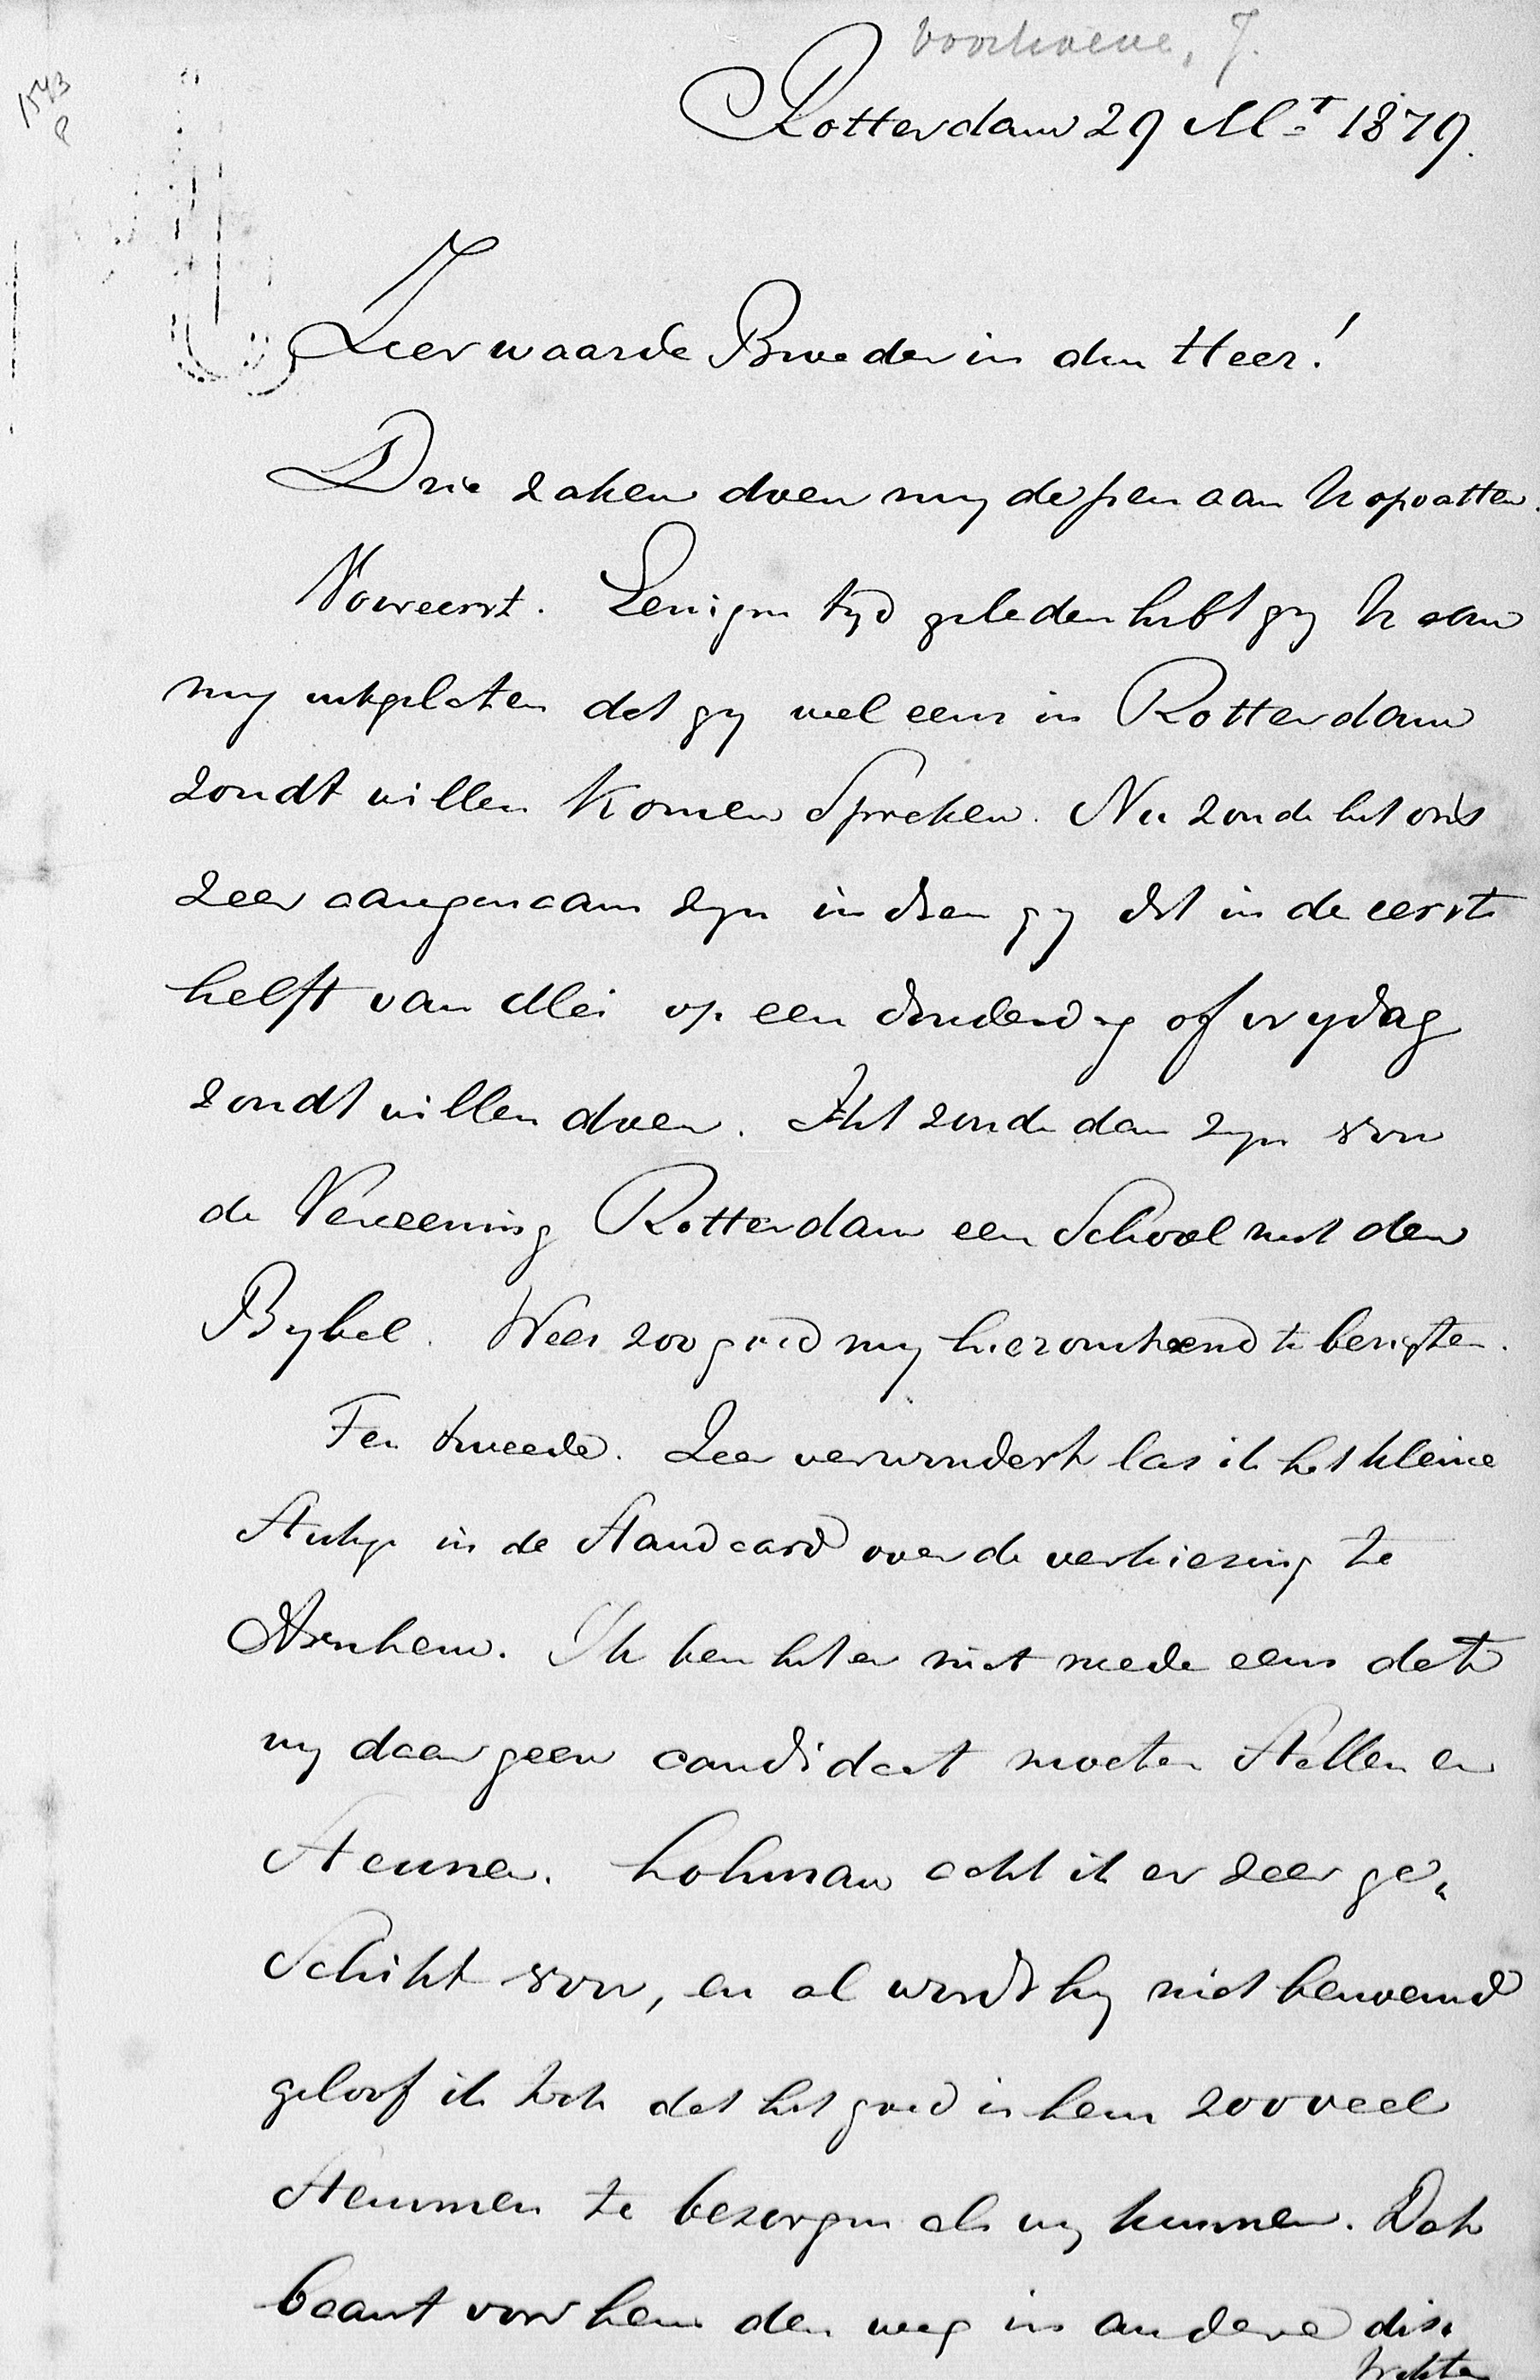 Voorhoeve, J.
1543
Rotterdam 29 Mrt 1879.
Zeer waarde Broeder in den Heer!
Drie zaken doen my de pen aan U opvatten.
Vooreerst. Eenigen tyd geleden hebt gy U aan
my uitgelaten dat gy wel eens in Rotterdam
zoudt willen komen spreken. Nu zoude het ons
zeer aangenaam zyn indien gy dit in de eerste
helft van Mei op een donderdag of vrydag
zoudt willen doen. Het zoude dan zyn voor
de Vereeniging Rotterdam een School met den
Bybel. Wees zoo goed my hieromtrend te berigten.
Ten tweede. Zeer verwondert las ik het kleine
stukje in de Standaard over de verkiezing te
Arnhem. Ik ben het er niet mede eens dat
wy daar geen candidaat moeten stellen en
steunen. Lohman acht ik er zeer ge„
schikt voor, en al wordt hy niet benoemd
geloof ik toch dat het goed is hem zooveel
stemmen te bezorgen als wy kunnen. Dat
baant voor hem den weg in andere dis„
trikten